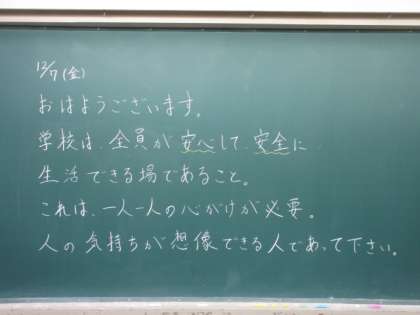 12/7(金)
おはようございます。
学校は、全員が安心して、安全に
生活できる場であること。
これは、一人一人の心がけが必要。
人の気持ちが想像できる人であって下さい。